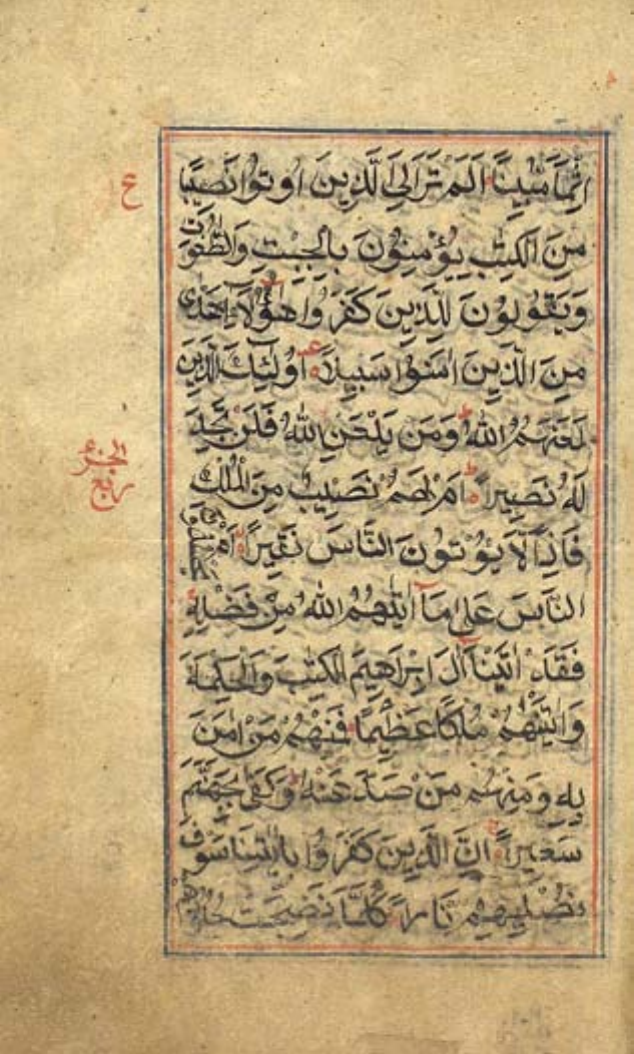 اِثْمًا مُّبِيْنًا اَلَمْ تَرَ اِلَى الَّذِيْنَ اُوْتُوْا نَصِيْبًا
مِنَ الْكِتٰبِ يُؤْمِنُوْنَ بِالْجِبْتِ وَالطَّاغُوْتِ
وَيَقُوْلُوْنَ لِلَّذِيْنَ كَفَرُوْا هٰٓؤُلَآءِ اَهْدٰى
مِنَ الَّذِيْنَ اٰمَنُوْا سَبِيْلًا اُولٰٓئِكَ الَّذِيْنَ
لَعَنَهُمُ اللّٰهُ وَمَنْ يَلْعَنِ اللّٰهُ فَلَنْ تَجِدَ
لَهٗ نَصِيْرًا اَمْ لَهُمْ نَصِيْبٌ مِنَ الْمُلْكِ
فَاِذًا لَّا يُؤْتُوْنَ النَّاسَ نَقِيْرًا اَمْ يَحْسُدُوْنَ
النَّاسَ عَلٰى مَآ اٰتٰىهُمُ اللّٰهُ مِنْ فَضْلِهٖ
فَقَدْ اٰتَيْنَآ اٰلَ اِبْرٰهِيْمَ الْكِتٰبَ وَالْحِكْمَةَ
وَاٰتَيْنٰهُمْ مُلْكًا عَظِيْمًا فَمِنْهُمْ مَنْ اٰمَنَ
بِهٖ وَمِنْهُمْ مَنْ صَدَّ عَنْهُ وَكَفٰى بِجَهَنَّمَ
سَعِيْرًا اِنَّ الَّذِيْنَ كَفَرُوْا بِاٰيٰتِنَا سَوْفَ
نُصْلِيْهِمْ نَارًا كُلَّمَا نَضِجَتْ جُلُوْدُهُمْ
ع
الجزء
ربع